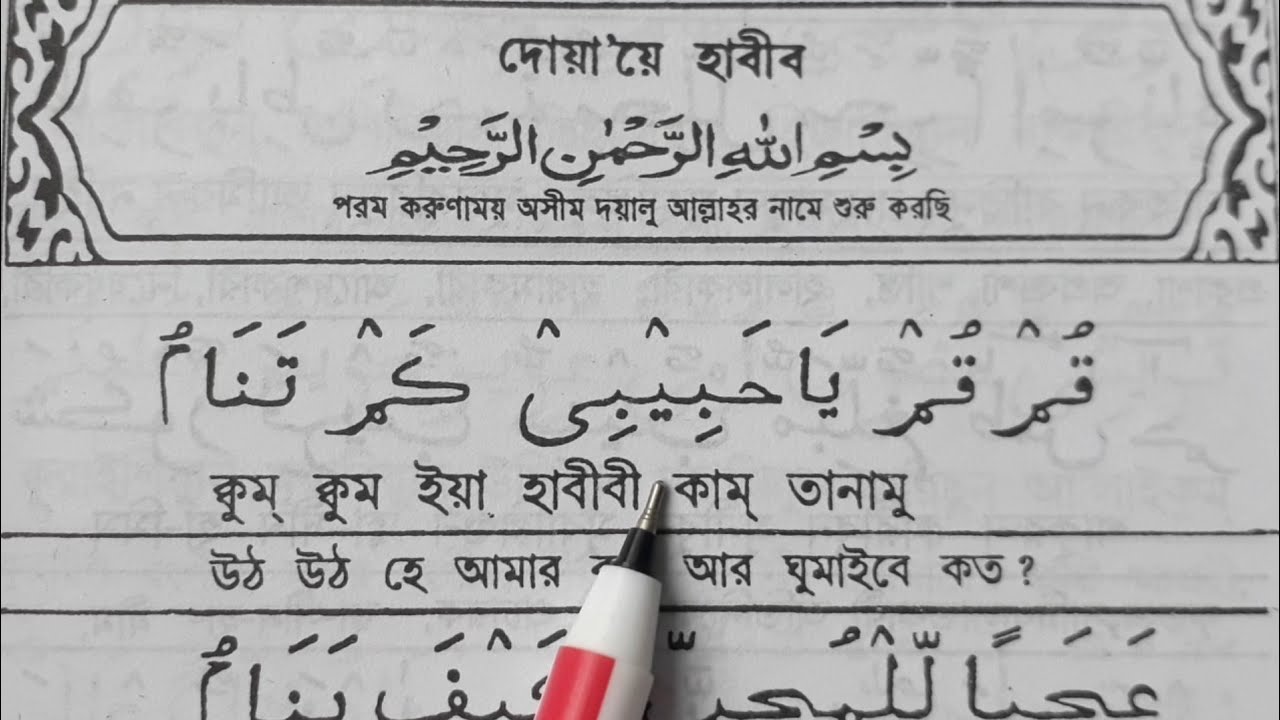 দোয়া'য়ে হাবীব
بِسْمِ اللهِ الرَّحْمٰنِ الرَّحِيْمِ
পরম করুণাময় অসীম দয়ালু আল্লাহর নামে শুরু করছি
قُمْ قُمْ يَا حَبِيْبِىْ كَمْ تَنَامُ
ক্বুম্ ক্বুম ইয়া হাবীবী কাম্ তানামু
উঠ উঠ হে আমার আর ঘুমাইবে কত ?
عَجَبًا